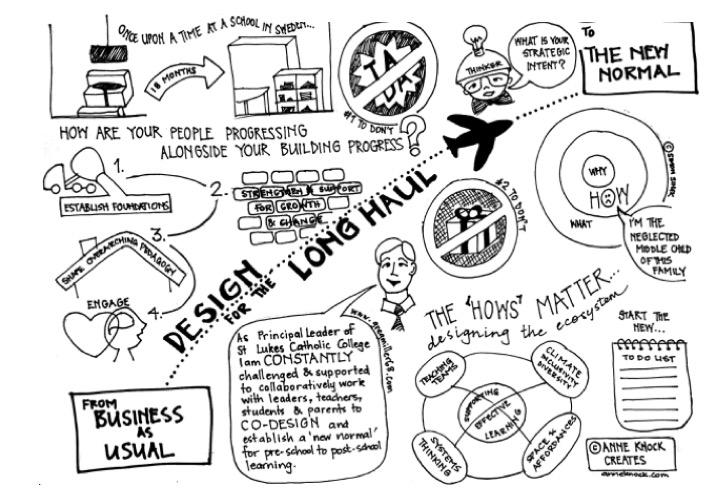 ONCE UPON A TIME AT A SCHOOL IN SWEDEN...
18 MONTHS
TA
DA
#1 TO DON'T
THINKER
WHAT IS YOUR
STRATEGIC
INTENT?
TO
THE NEW
NORMAL
HOW ARE YOUR PEOPLE PROGRESSING
ALONGSIDE YOUR BUILDING PROGRESS?
1.
ESTABLISH FOUNDATIONS
2.
STRENGTHEN & SUPPORT
FOR GROWTH
& CHANGE
3.
SHAPE OVERARCHING PEDAGOGY
ENGAGE
4.
DESIGN
FOR THE
LONG HAUL
#2 TO DON'T
WHY
HOW
WHAT
I'M THE
NEGLECTED
MIDDLE CHILD
OF THIS
FAMILY
FROM
BUSINESS
AS
USUAL
As Principal Leader of
St Lukes Catholic College
I am CONSTANTLY
challenged & supported
to collaboratively work
with leaders, teachers,
students & parents to
CO-DESIGN and
establish a 'new normal'
for pre-school to post-school
learning.
THE 'HOWS' MATTER...
designing the ecosystem
TEACHING
TEAMS
CLIMATE
INCLUSIVITY
DIVERSITY
SUPPORTING
EFFECTIVE
LEARNING
SYSTEMS
THINKING
SPACE &
AFFORDANCES
START THE
NEW...
TO DO LIST
© ANNE KNOCK
CREATES
anneknock.com